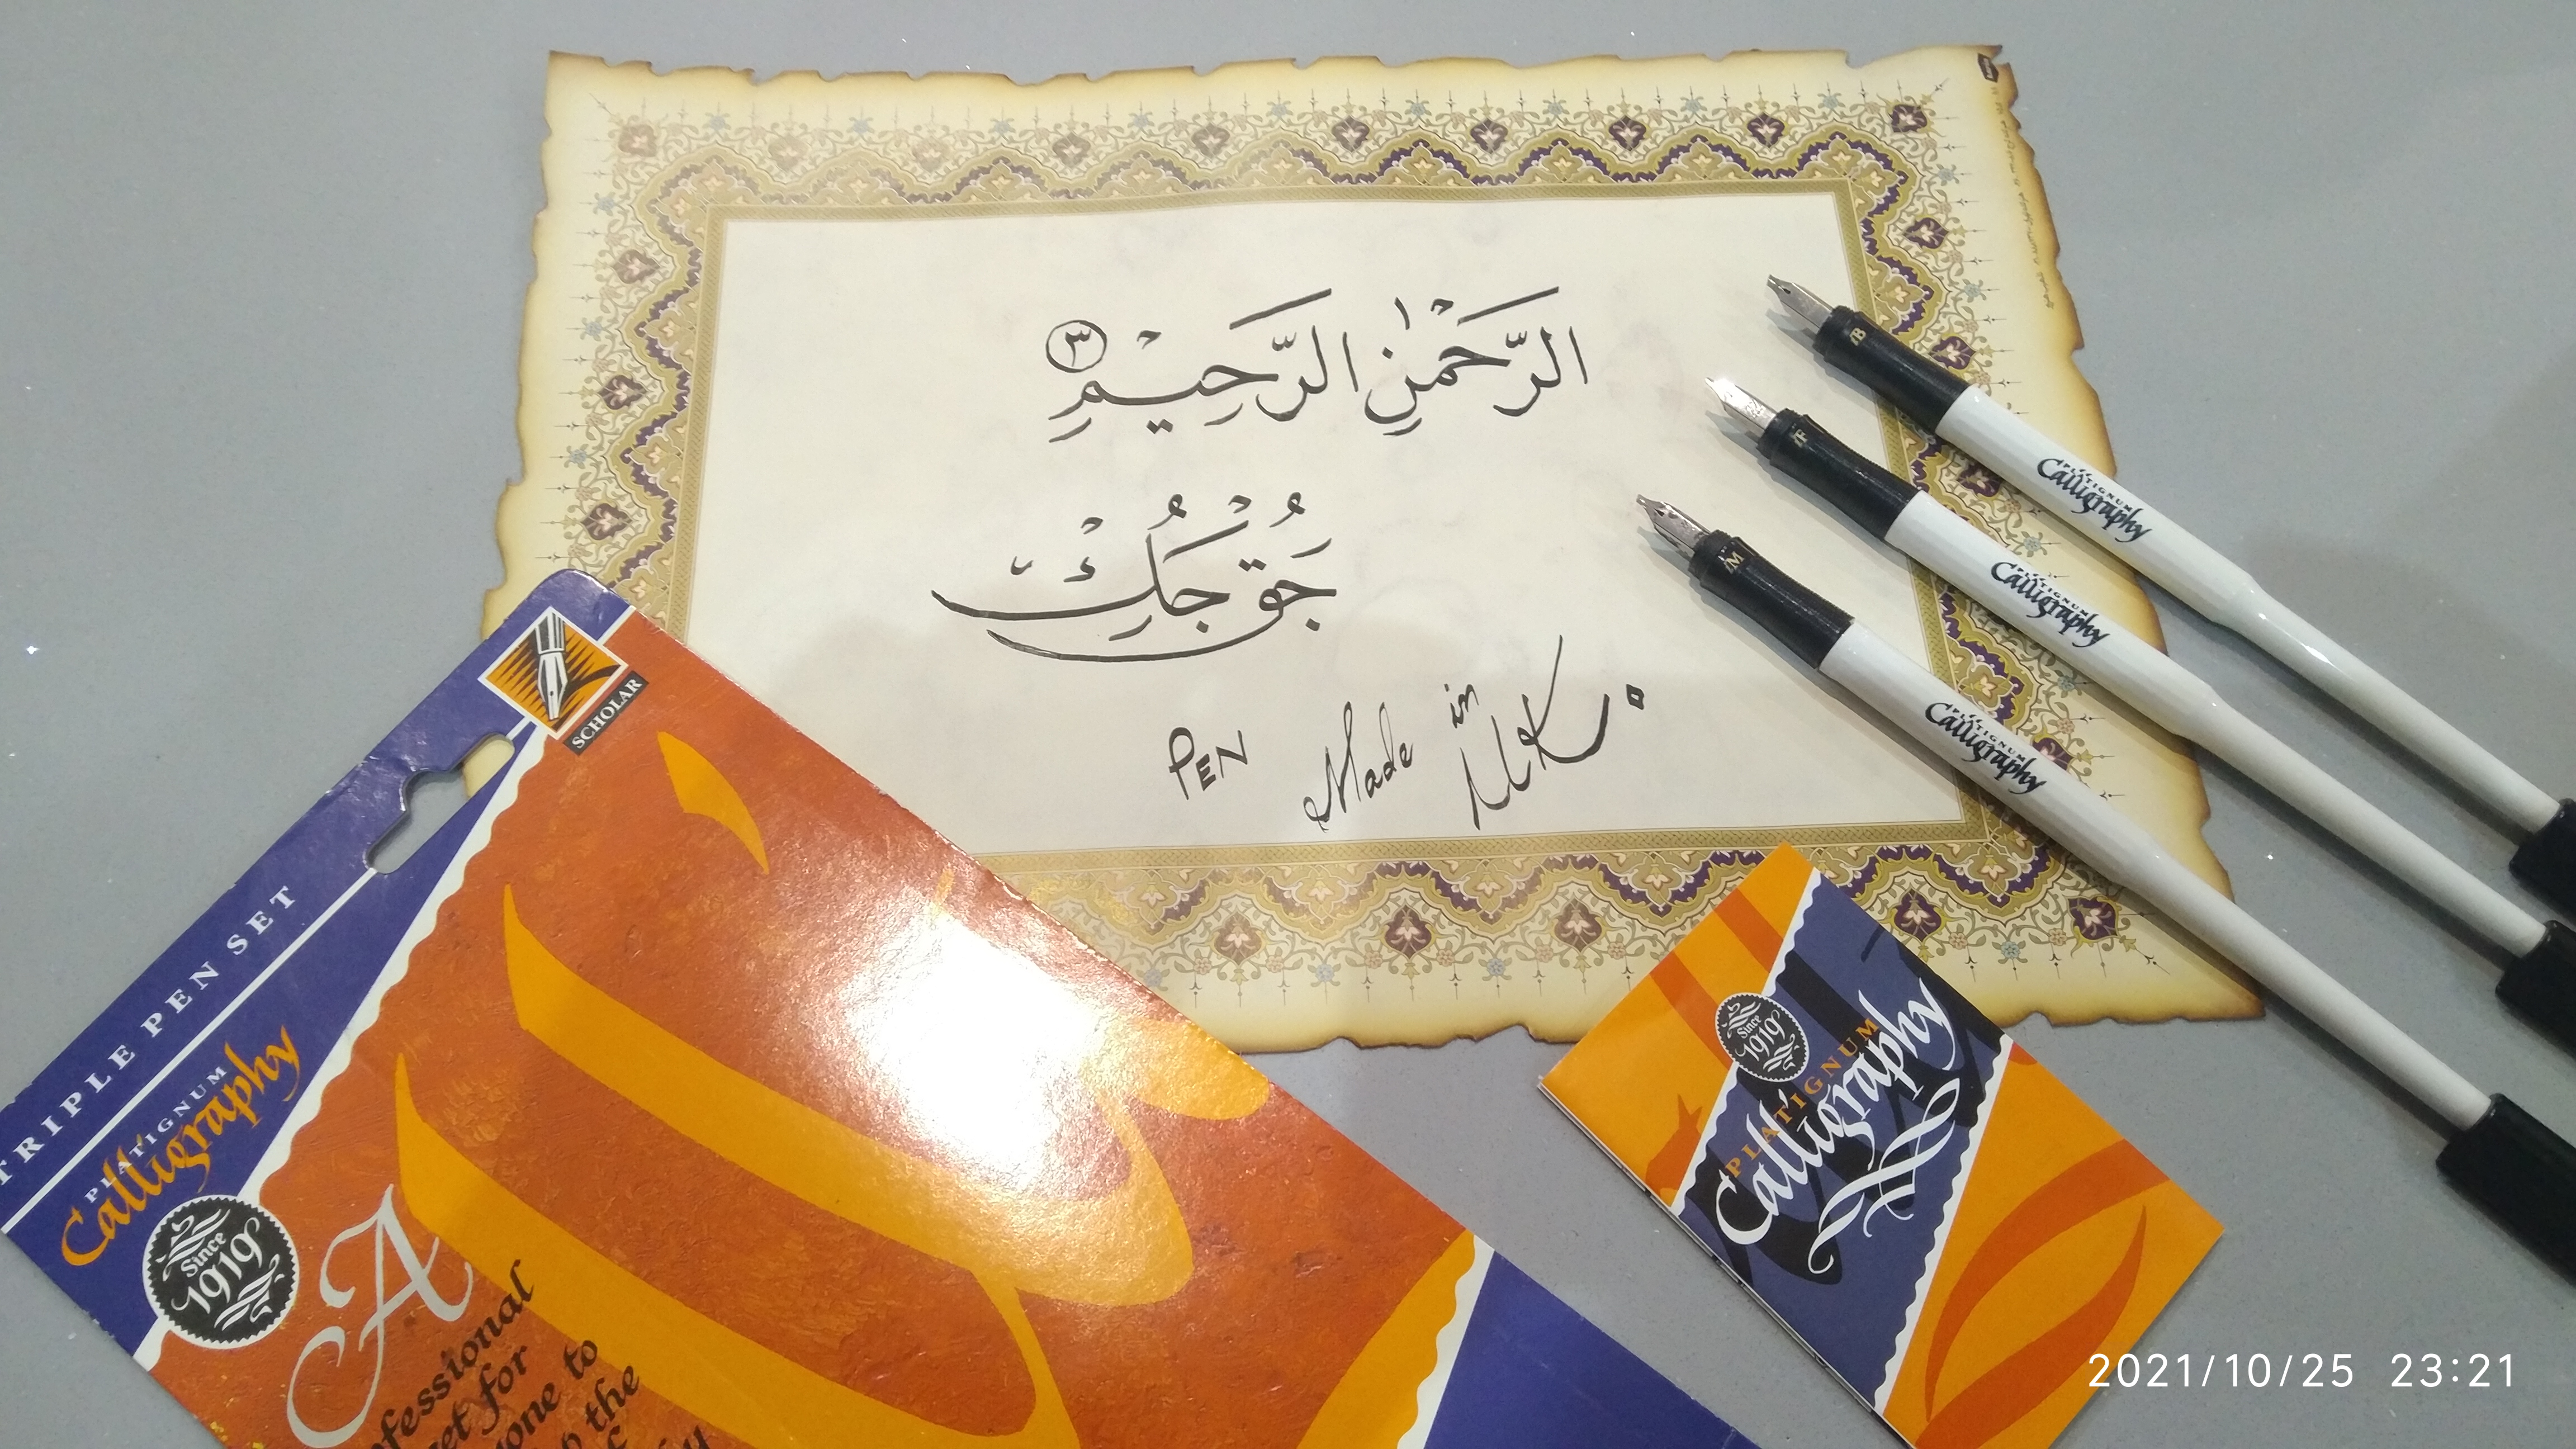 الرَّحْمٰنِ الرَّحِيْمِ ٣
PEN Made in U.K.
B
F
M
PLATIGNUM
Calligraphy
PLATIGNUM
Calligraphy
PLATIGNUM
Calligraphy
SCHOLAR
TRIPLE PEN SET
PLATIGNUM
Calligraphy
Since
1919
A
ofessional
et for
one to
the
Since
1919
PLATIGNUM
Calligraphy
2021/10/25 23:21